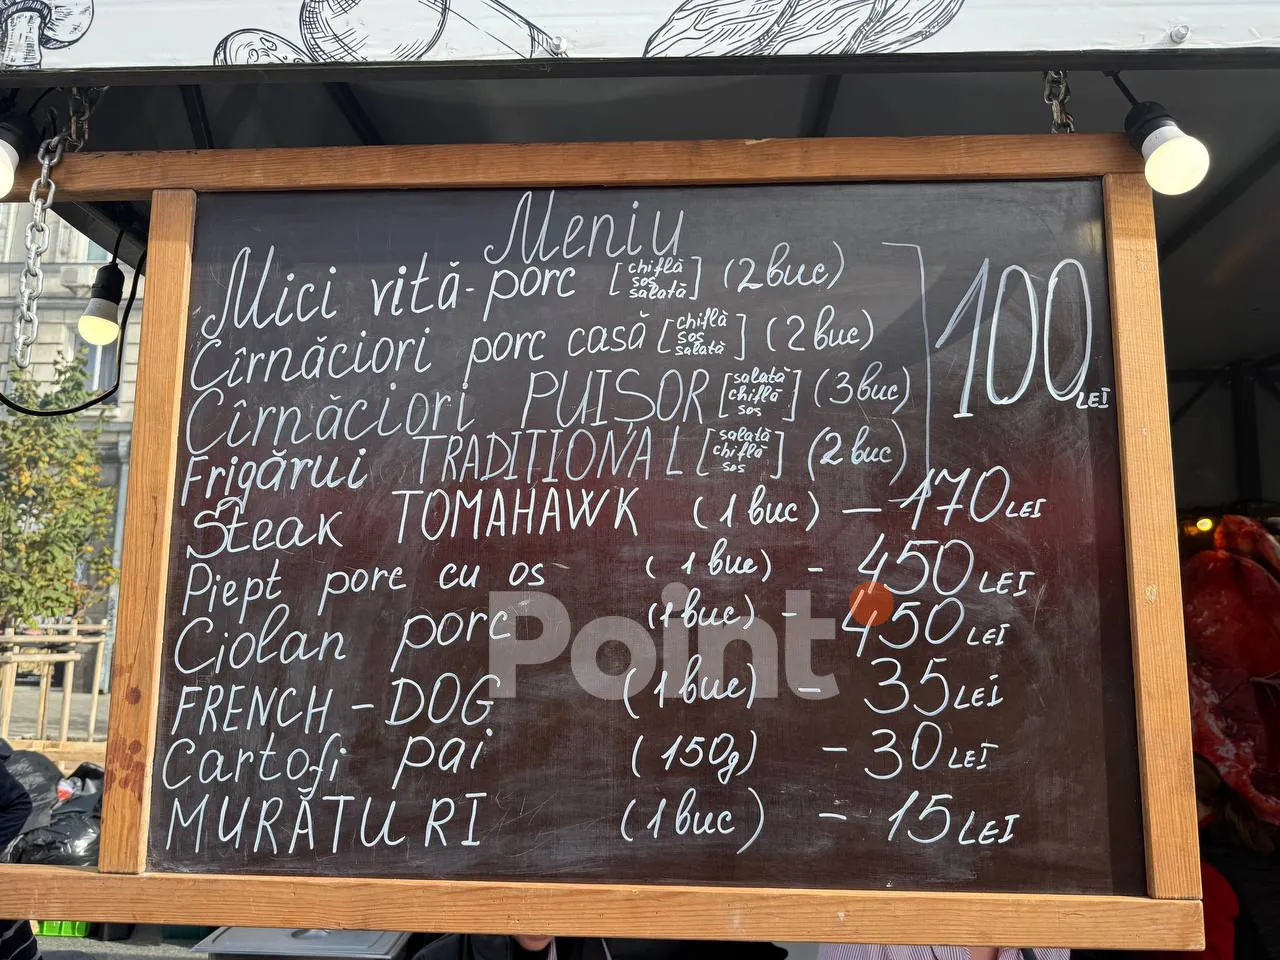 Meniu
Mici vită-porc [chiflă sos salată] (2buc)
Cîrnăciori porc casă [chiflă sos salată] (2buc)
Cîrnăciori PUIȘOR [salată chiflă sos] (3buc)
Frigărui TRADIȚIONAL [salată chiflă sos] (2buc)
100 LEI
Steak TOMAHAWK (1buc) - 170 LEI
Piept porc cu os (1buc) - 450 LEI
Ciolan porc (1buc) - 450 LEI
FRENCH-DOG (1buc) - 35 LEI
Cartofi pai (150g) - 30 LEI
MURĂTURI (1buc) - 15 LEI
Point